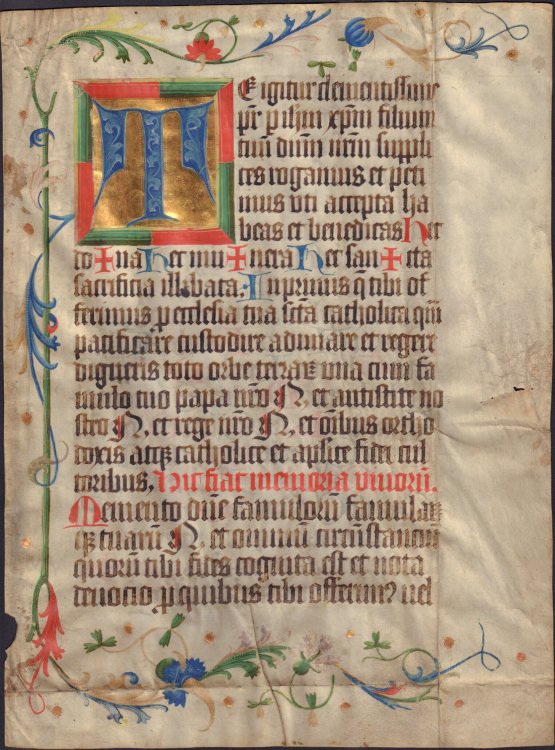 TE igitur clementissime
pr̄ p ih̄m xp̄m filium
tuū dn̄m nr̄m suppli
ces rogamus et peti
mus vti accepta ha
beas et benedicas Hec
do✚na Hec mu✚nera Hec san✚cta
sacrificia illibata. Inprimis q̄ tibi of
ferimus p ecclesia tua sc̄ta catholica quā
pacificare custodire adunare et regere
digneris toto orbe terraꝝ vna cum fa
mulo tuo papa nr̄o N. et antistite no
stro N. et rege nr̄o N. et oībus ortho
doxis atqꝫ catholice et aplice fidei cul
toribus. Hic fiat memoria viuorū.
Memento dn̄e famulorū famulaꝝ
qꝫ tuarū N. et omniū circūstanciū
quorū tibi fides cognita est et nota
deuocio p quibus tibi offerimꝰ uel